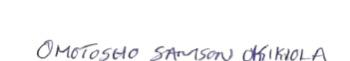 OMOTOSHO SAMSON OKIKIOLA